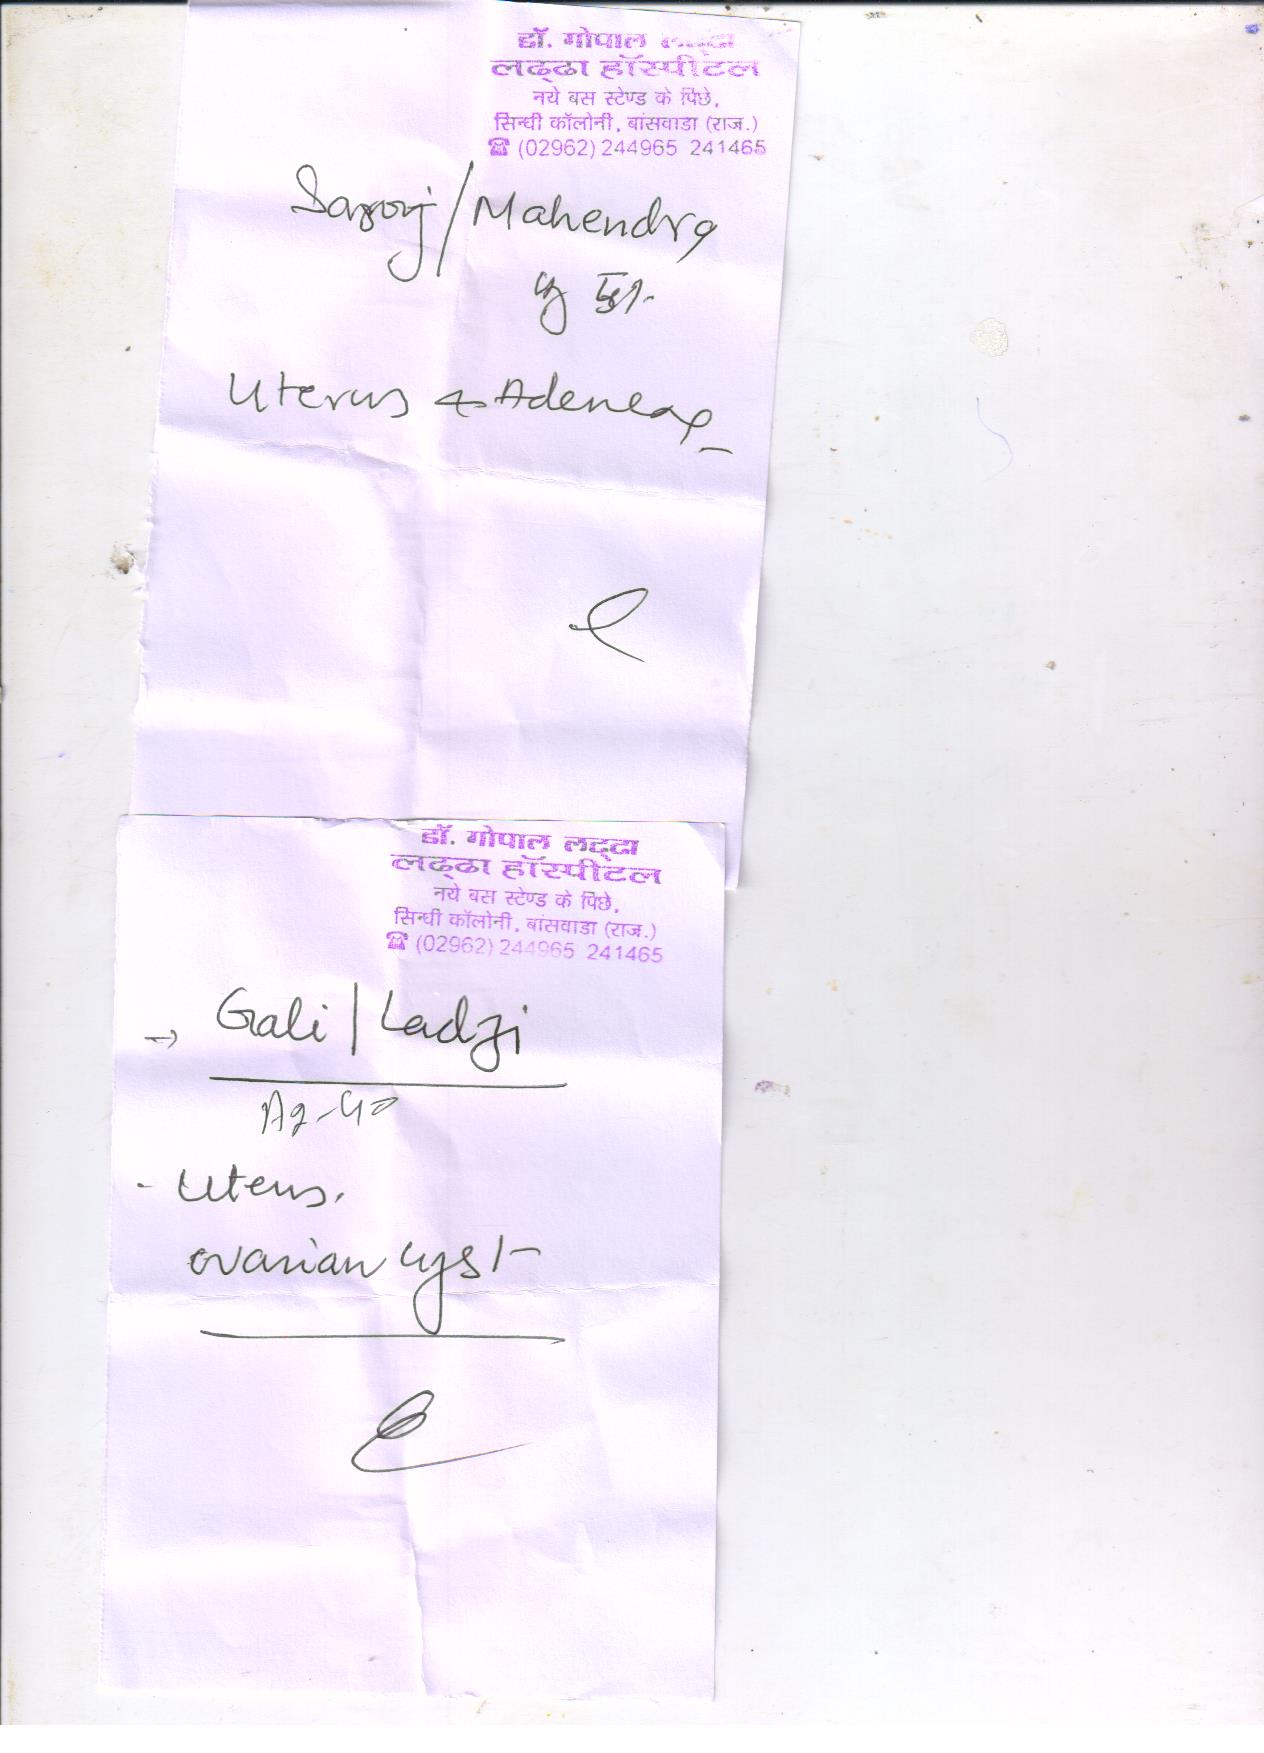 डॉ. गोपाल लढ्ढा
लढ्ढा हॉस्पीटल
नये बस स्टेण्ड के पिछे,
सिन्धी कॉलोनी, बांसवाडा (राज.)
☎ (02962) 244965 241465
Saroj/Mahendra
Uterus &
डॉ. गोपाल लढ्ढा
लढ्ढा हॉस्पीटल
नये बस स्टेण्ड के पिछे,
सिन्धी कॉलोनी, बांसवाडा (राज.)
☎ (02962) 244965 241465
→ Gali/Ladji
- Uterus.
ovarian cyst